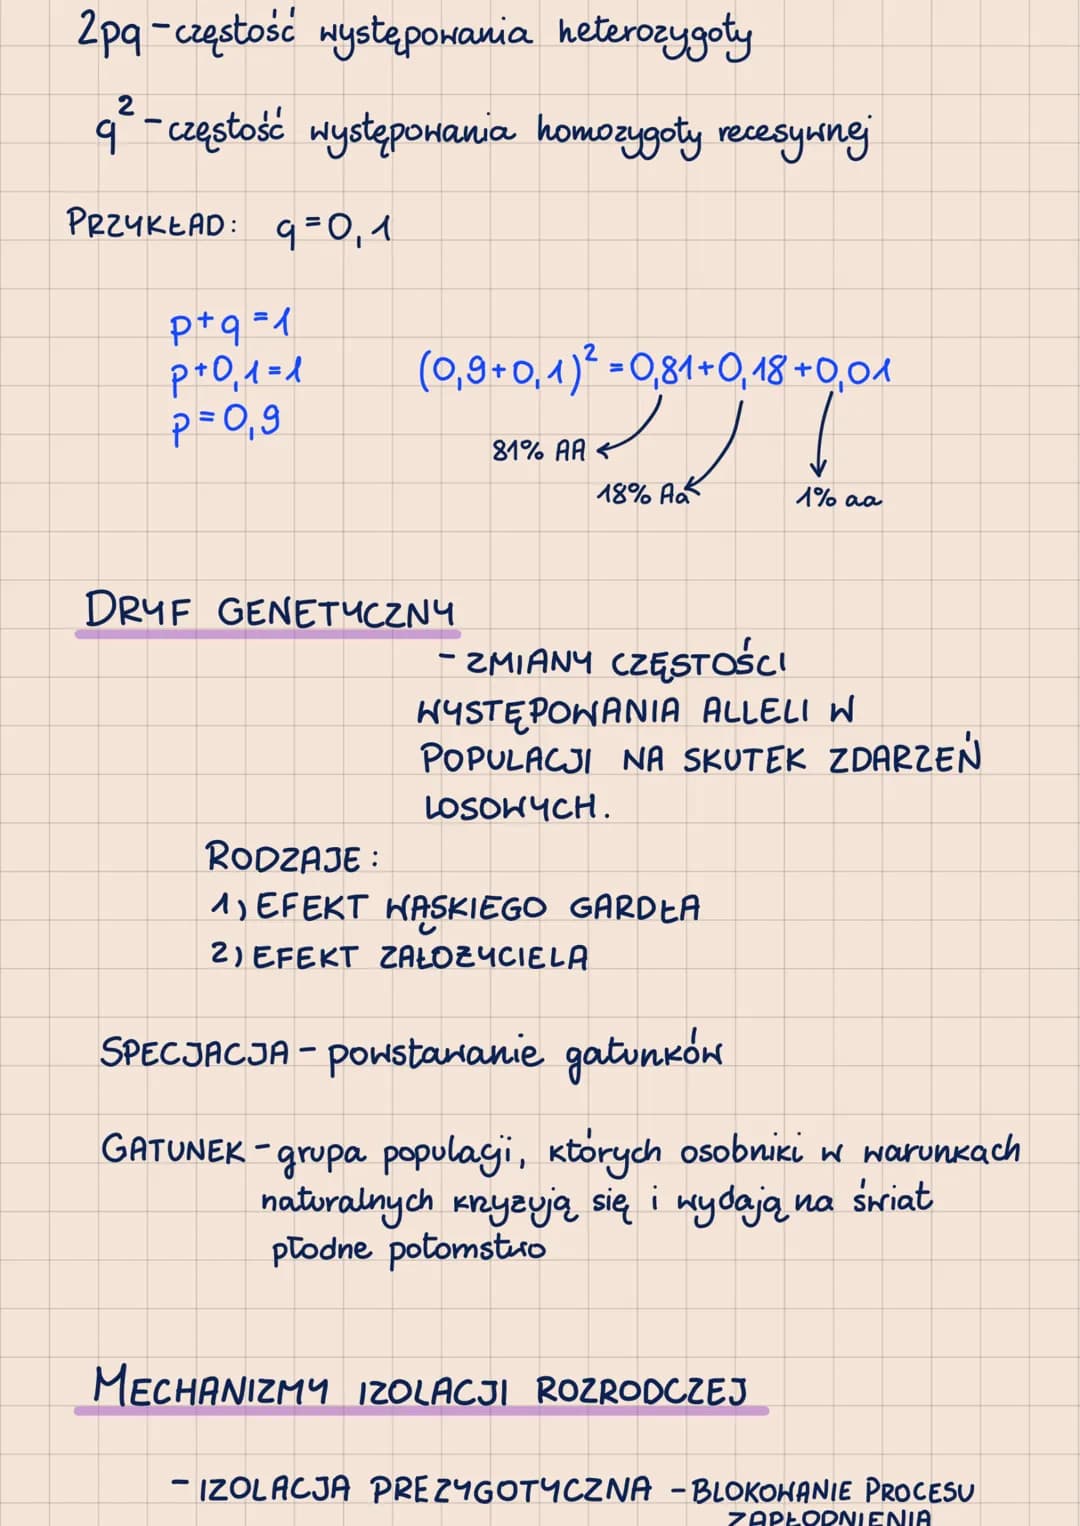 2pq - częstość występowania heterozygoty
q² - częstość występowania homozygoty recesywnej
PRZYKŁAD: q = 0,1
p + q = 1
p + 0,1 = 1
p = 0,9
(0,9 + 0,1)² = 0,81 + 0,18 + 0,01
81% AA
18% Aa
1% aa
DRYF GENETYCZNY
- ZMIANY CZĘSTOŚCI
WYSTĘPOWANIA ALLELI W
POPULACJI NA SKUTEK ZDARZEŃ
LOSOWYCH.
RODZAJE:
1) EFEKT WĄSKIEGO GARDŁA
2) EFEKT ZAŁOŻYCIELA
SPECJACJA - powstawanie gatunków
GATUNEK - grupa populacji, których osobniki w warunkach
naturalnych krzyżują się i wydają na świat
płodne potomstwo
MECHANIZMY IZOLACJI ROZRODCZEJ
- IZOLACJA PREZYGOTYCZNA - BLOKOWANIE PROCESU
ZAPŁODNIENIA